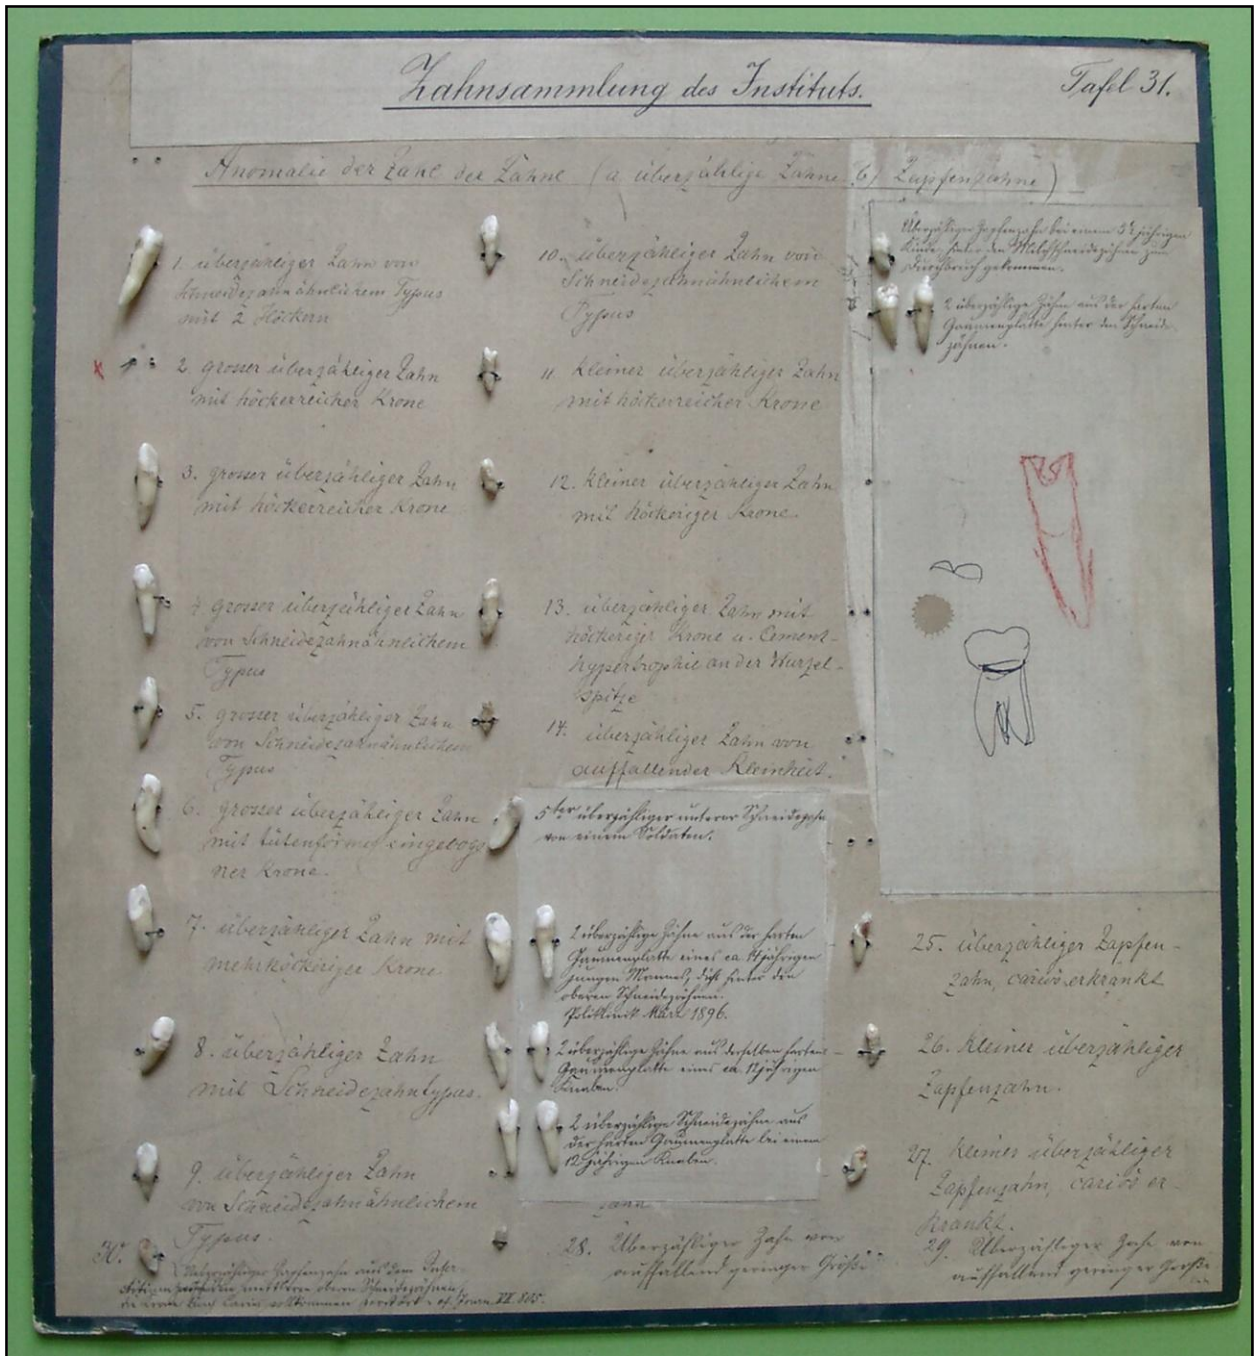 Zahnsammlung des Instituts.
Tafel 31.
Anomalie der Zahl der Zähne (a überzählige Zähne b) Zapfenzähne)
1. überzähliger Zahn von
schneidezahnähnlichem Typus
mit 2 Höckern
2. grosser überzähliger Zahn
mit höckerreicher Krone
3. grosser überzähliger Zahn
mit höckerreicher Krone
4. grosser überzähliger Zahn
von Schneidezahnähnlichem
Typus
5. grosser überzähliger Zahn
von Schneidezahnähnlichem
Typus
6. grosser überzähliger Zahn
mit tütenförmig eingeboge
ner Krone.
7. überzähliger Zahn mit
mehrhöckeriger Krone
8. überzähliger Zahn
mit Schneidezahntypus.
9. überzähliger Zahn
von Schneidezahnähnlichem
Typus.
30.
Zapfenzahn aus dem
oberen Schneidezähnen
10. überzähliger Zahn von
Schneidezahnähnlichem
Typus
11. Kleiner überzähliger Zahn
mit höckerreicher Krone
12. Kleiner überzähliger Zahn
mit höckeriger Krone.
13. überzähliger Zahn mit
höckeriger Krone u. Cement-
hypertrophie an der Wurzel-
spitze
14. überzähliger Zahn von
auffallender Kleinheit.
5ter überzähliger unterer Schneidezahn
von einem Soldaten.
2 überzählige Zähne aus der harten
Gaumenplatte eines ca. jährigen
jungen Mannes, dicht hinter den
oberen Schneidezähnen.
Poliklinik März 1896.
2 überzählige Zähne aus derselben harten
Gaumenplatte eines ca. 12jährigen
Knaben.
2 überzählige Schneidezähne aus
der harten Gaumenplatte bei einem
12 jährigen Knaben.
28. Überzähliger Zahn von
auffallend geringer Größe
Überzähliger Zapfenzahn bei einem jährigen
Kinde, hinter den Milchschneidezähnen zum
Durchbruch gekommen.
2 überzählige Zähne aus der harten
Gaumenplatte hinter den Schneide-
zähnen.
25. überzähliger Zapfen-
zahn, cariös erkrankt
26. Kleiner überzähliger
Zapfenzahn.
27. Kleiner überzähliger
Zapfenzahn, cariös er-
krankt.
29. Überzähliger Zahn von
auffallend geringer Größe